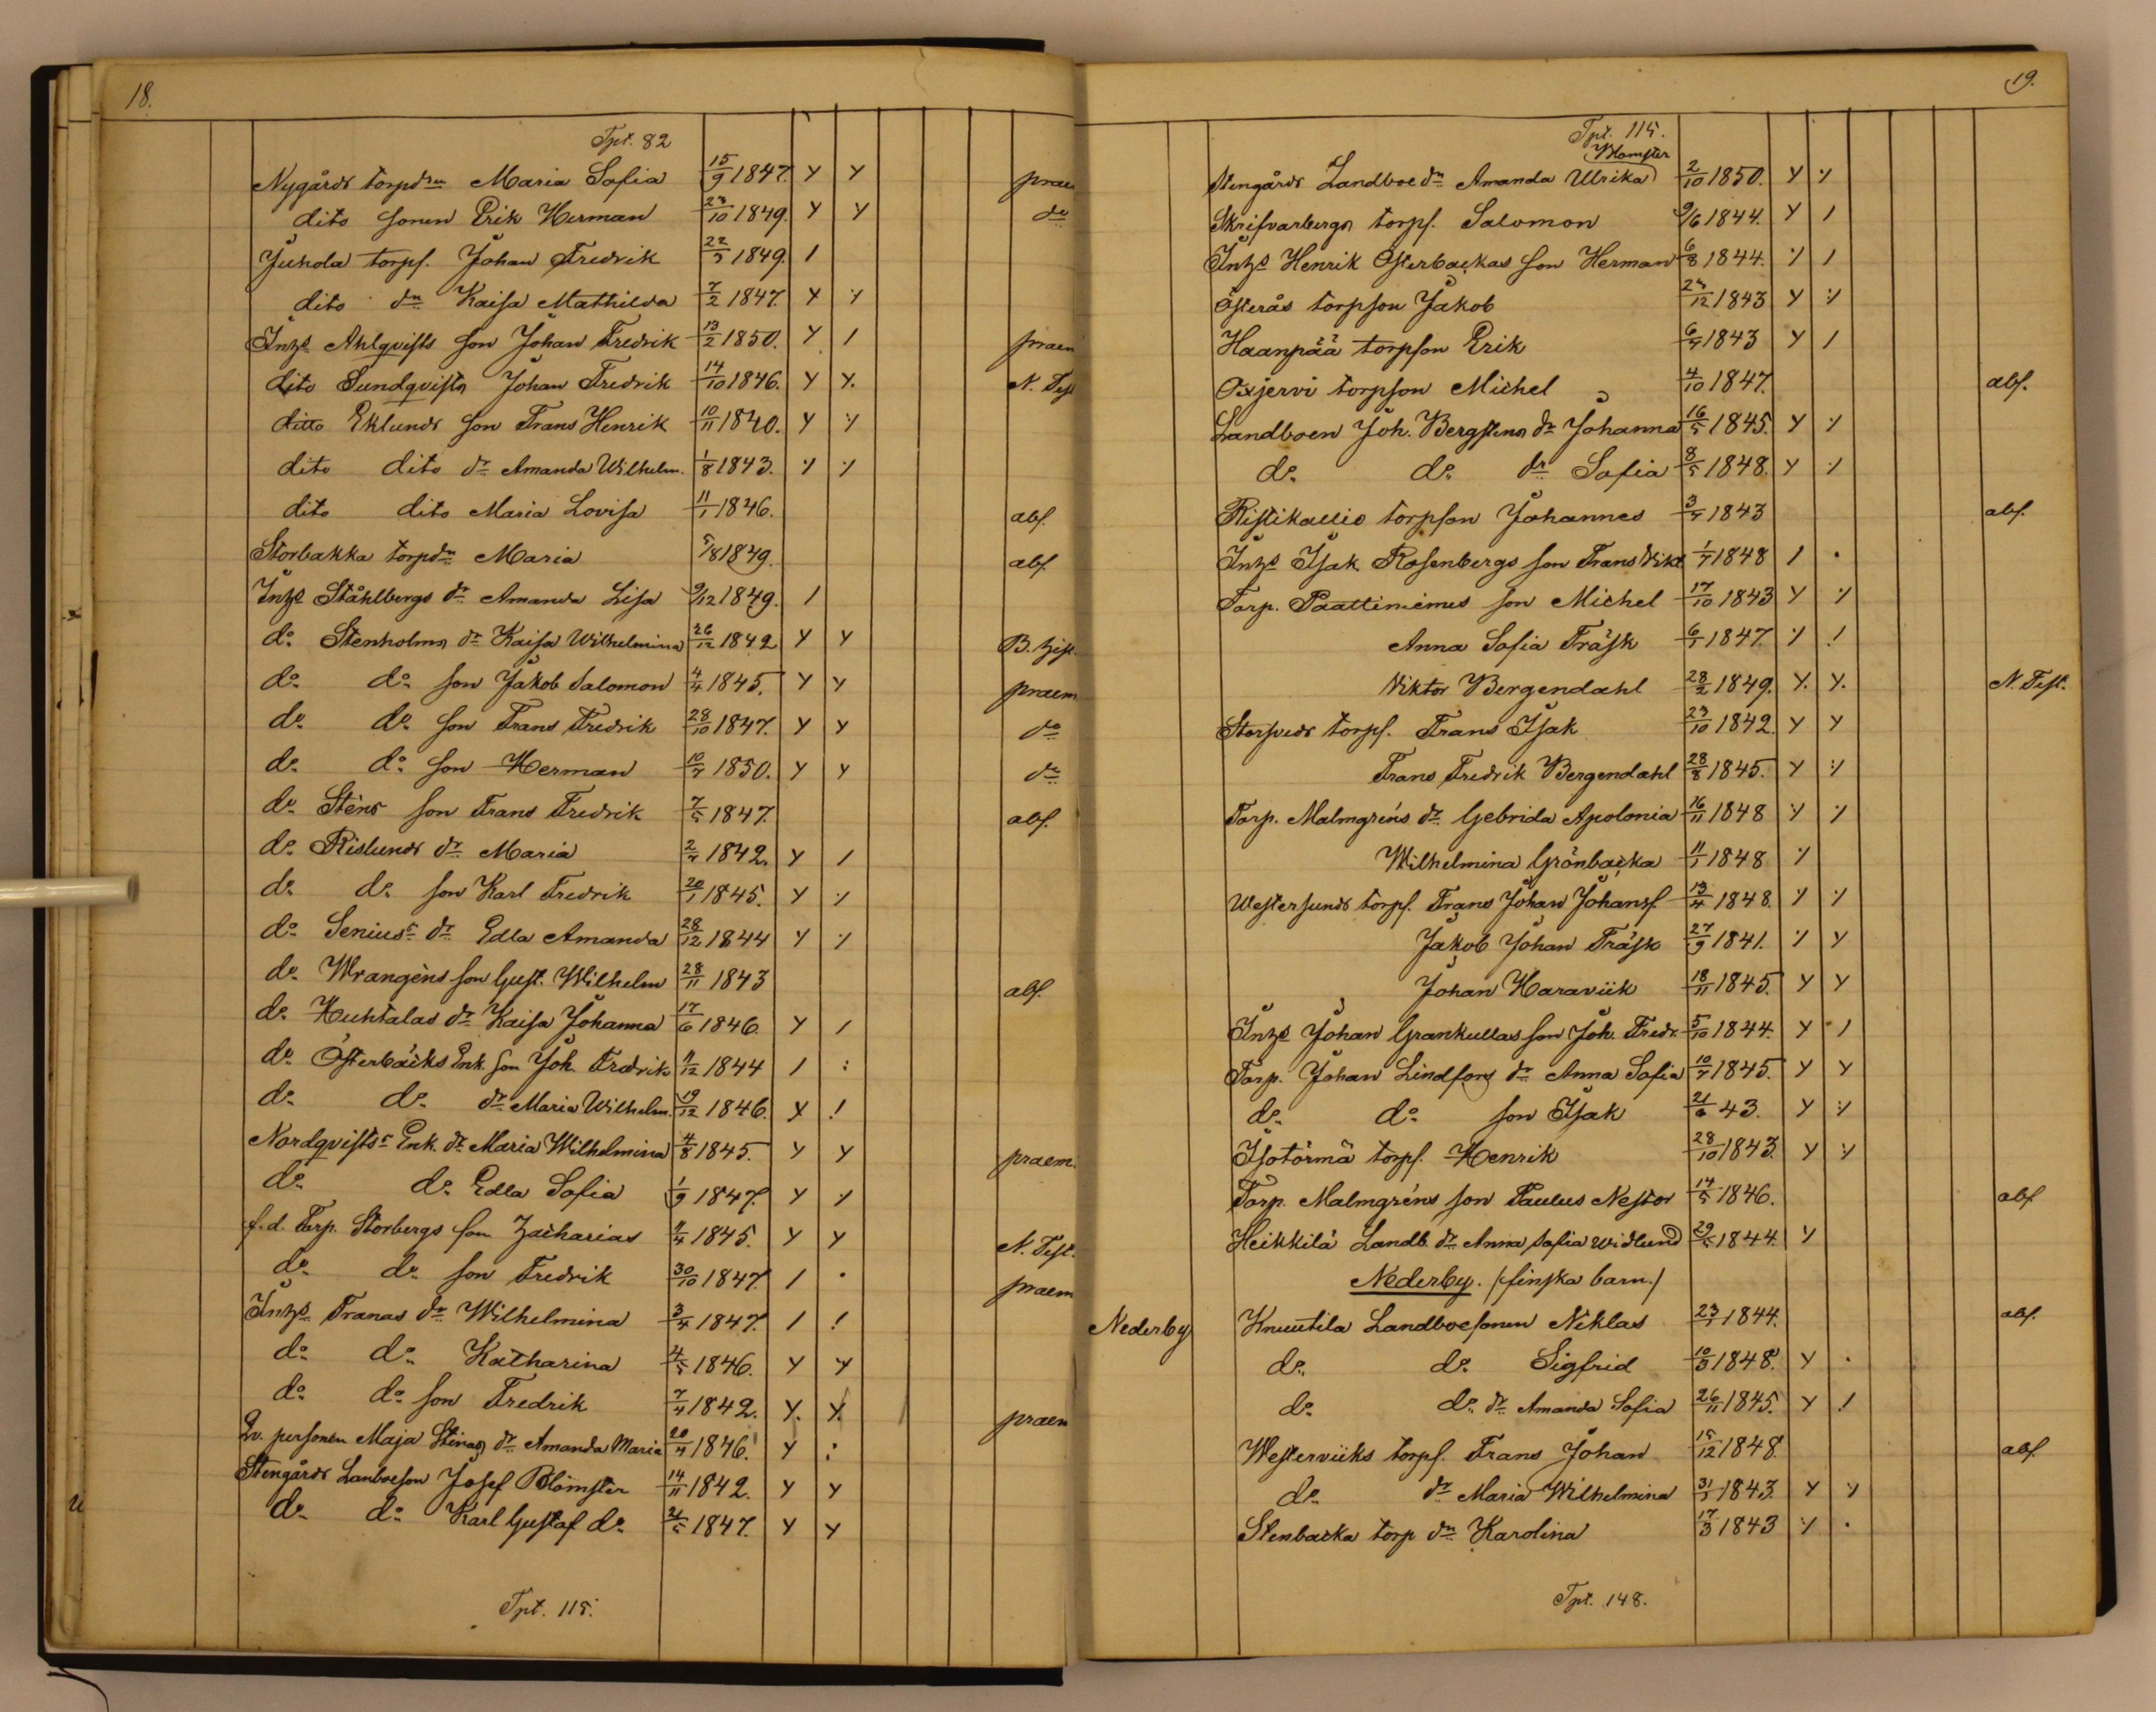 18.
Tpt. 82
Nygårds torpdrn Maria Sofia 15/9 1847. Y Y prae
dito sonen Erik Herman 23/10 1849. Y Y do
Juhola torps. Johan Fredrik 22/5 1849. /
dito dn Kaisa Mathilda 7/2 1847. Y ٪
Inhs Ahlqvists son Johan Fredrik 13/2 1850. Y / praem
dito Sundqvists Johan Fredrik 14/10 1846. Y Y. N. Tes
ditto Eklunds son Frans Henrik 10/11 1840. Y ٪
dito dito dr Amanda Wilhelm. 1/8 1843. ٪ ٪
dito dito Maria Lovisa 11/1 1846. abs.
Storbakka torpdn Maria 5/8 1849. abs.
Inhs Ståhlbergs dr Amanda Lisa 9/12 1849. /
do Stenholms dr Kaisa Wilhelmina 26/12 1842 Y Y B. hist.
do do son Jakob Salomon 4/4 1845. Y Y praem
do do son Frans Fredrik 28/10 1847. Y Y do
do do son Herman 10/7 1850. Y Y do
do Sténs son Frans Fredrik 7/5 1847. abs.
do Rislunds dr Maria 2/7 1842. Y /
do do son Karl Fredrik 20/1 1845. Y ٪
do Senius's dr Edla Amanda 28/12 1844 Y ٪
do Wrangéns son Gust. Wilhelm 28/11 1843 abs.
do Huhtalas dr Kaisa Johanna 17/6 1846. Y /
do Österbäcks Enk. son Joh. Fredrik 11/12 1844 / :
do do dr Maria Wilhelm. 19/12 1846. Y !
Nordqvists Enk. dr Maria Wilhelmina 4/8 1845. Y Y praem.
do do Edla Sofia 1/9 1847. Y ٪
f.d. Torp. Storbergs son Zacharias 11/4 1845. Y Y N. Test.
do do son Fredrik 30/10 1847. / . praem
Inhs Tranas dr Wilhelmina 3/4 1847. / !
do do Katharina 4/5 1846. Y Y
do do son Fredrik 7/4 1842. Y. Y. praem
Qv. personen Maja Stinas dr Amanda Maria 20/4 1846. Y :
Stengårds Lanboeson Josef Blomster 14/11 1842. Y Y
do do Karl Gustaf do 21/5 1847. Y Y
Tpt. 115.
19.
Tpt. 115.
Blomster
Stengårds Landboe dn Amanda Ulrika 2/10 1850. Y ٪
Skrifvarbergs torps. Salomon 9/6 1844. Y /
Inhs Henrik Österbackas son Herman 6/8 1844. ٪ /
Österås torpson Jakob 23/12 1843 Y ٪
Haanpää torpson Erik 6/7 1843 Y /
Oxjervi torpson Michel 4/10 1847. abs.
Landboen Joh. Bergstens dr Johanna 16/5 1845. Y ٪
do do dr Sofia 8/5 1848. Y ٪
Ristikallio torpson Johannes 3/7 1843 abs.
Inhs Isak Rosenbergs son Frans Vikt 1/7 1848 / .
Torp. Paattiniemes son Michel 17/10 1843 Y ٪
Anna Sofia Träsk 6/1 1847. ٪ !
Viktor Bergendahl 28/2 1849. Y. Y. N. Test.
Storsveds torps. Frans Isak 23/10 1842. Y Y
Frans Fredrik Bergendahl 28/8 1845. Y ٪
Torp. Malmgréns dr Gebrida Apolonia 16/11 1848 ٪ ٪
Wilhelmina Grönbacka 11/1 1848 ٪
Westersunds torps. Frans Johan Johanss. 13/4 1848. ٪ ٪
Jakob Johan Träsk 27/9 1841. ٪ Y
Johan Haraviik 18/11 1845. Y Y
Inhs Johan Grankullas son Joh. Fredr. 5/10 1844. Y /
Torp. Johan Lindfors dr Anna Sofia 10/7 1845. Y Y
do do son Isak 21/6 43. Y ٪
Isotörmä torps. Henrik 28/10 1843. Y ٪
Torp. Malmgréns son Paulus Nestor 14/5 1846. abs
Heikkilä Landb. dr Anna Sofia Widlund 29/5 1844. ٪
Nederby. /finska barn./
Nederby Knuutila Landboesonen Niklas 23/1 1844. abs.
do do Sigfrid 10/3 1848. Y .
do do dr Amanda Sofia 26/11 1845. Y !
Westerviiks torps. Frans Johan 15/12 1848 abs.
do dr Maria Wilhelmina 31/5 1843. Y ٪
Stenbacka torp dn Karolina 17/3 1843 ٪ .
Tpt. 148.